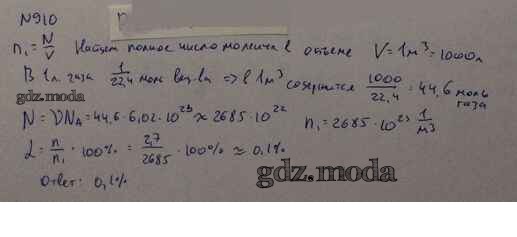 N910
n₁ = N/V Найдем полное число молекул в объеме V = 1 м³ = 1000 л
В 1 л. газа 1/22,4 моль вещ-ва => в 1 м³ содержится 1000/22,4 = 44,6 моль газа
gdz.moda
N = νN_A = 44,6 · 6,02 · 10²³ ≈ 2685 · 10²² n₁ = 2685 · 10²³ 1/м³
L = n/n₁ · 100% = 2,7/2685 · 100% ≈ 0,1%
Ответ: 0,1%
gdz.moda